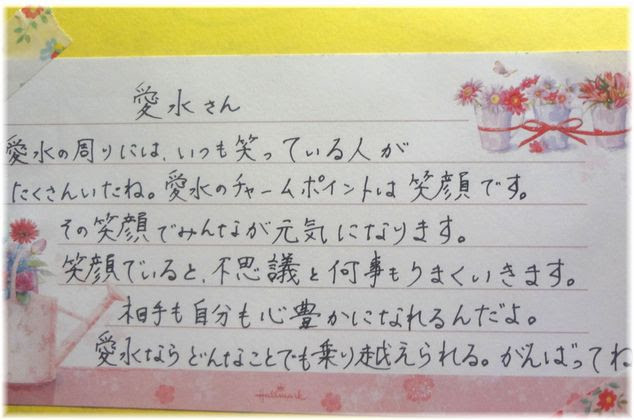 愛水さん
愛水の周りには、いつも笑っている人が
たくさんいたね。愛水のチャームポイントは笑顔です。
その笑顔でみんなが元気になります。
笑顔でいると、不思議と何事もうまくいきます。
相手も自分も心豊かになれるんだよ。
愛水ならどんなことでも乗り越えられる。がんばってね
Hallmark